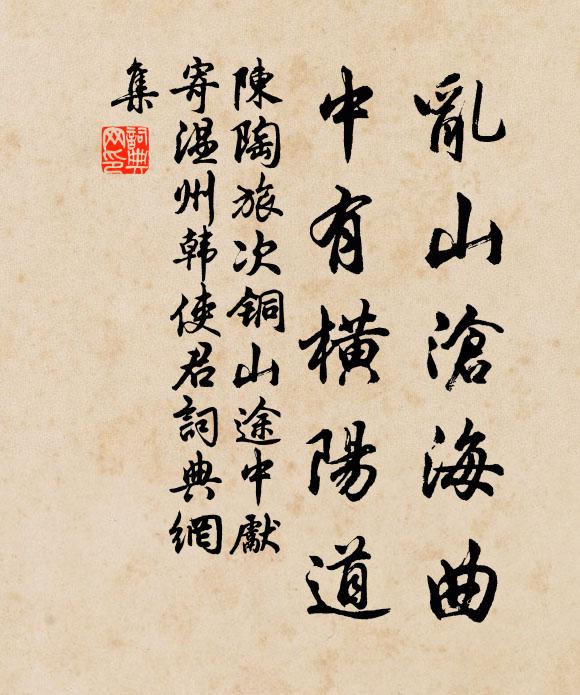 亂山滄海曲
中有橫陽道
陳陶旅次铜山途中獻
寄温州韩使君詞典網
集
詞典
网印